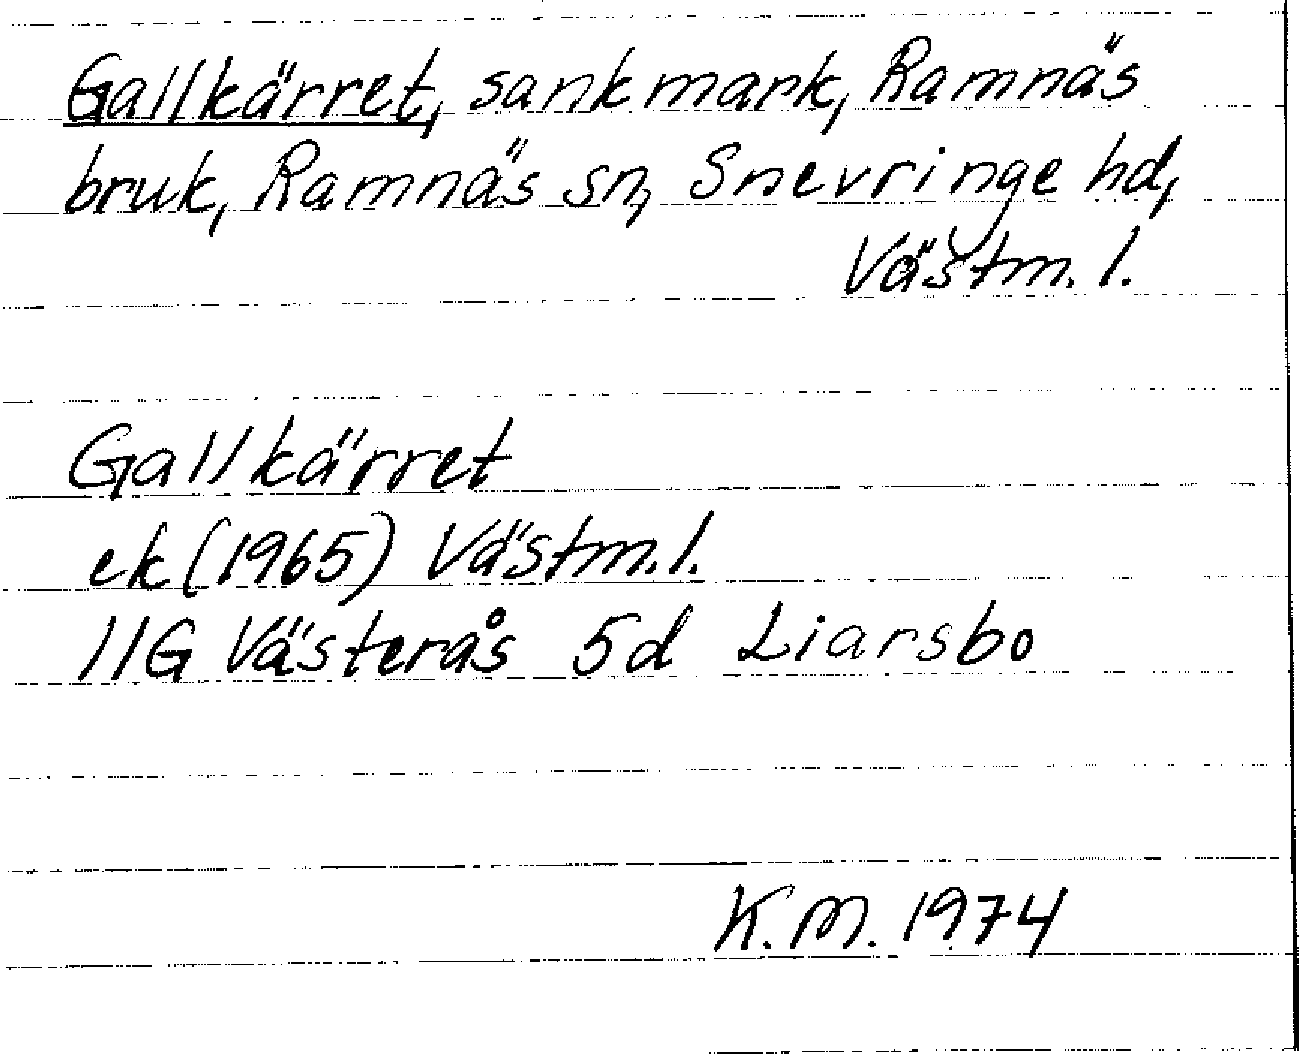 Gallkärret, sankmark, Ramnäs
bruk, Ramnäs sn, Snevringe hd,
Västm. l.
Gallkärret
ek (1965) Västm. l.
11G Västerås 5d Liarsbo
K.M. 1974